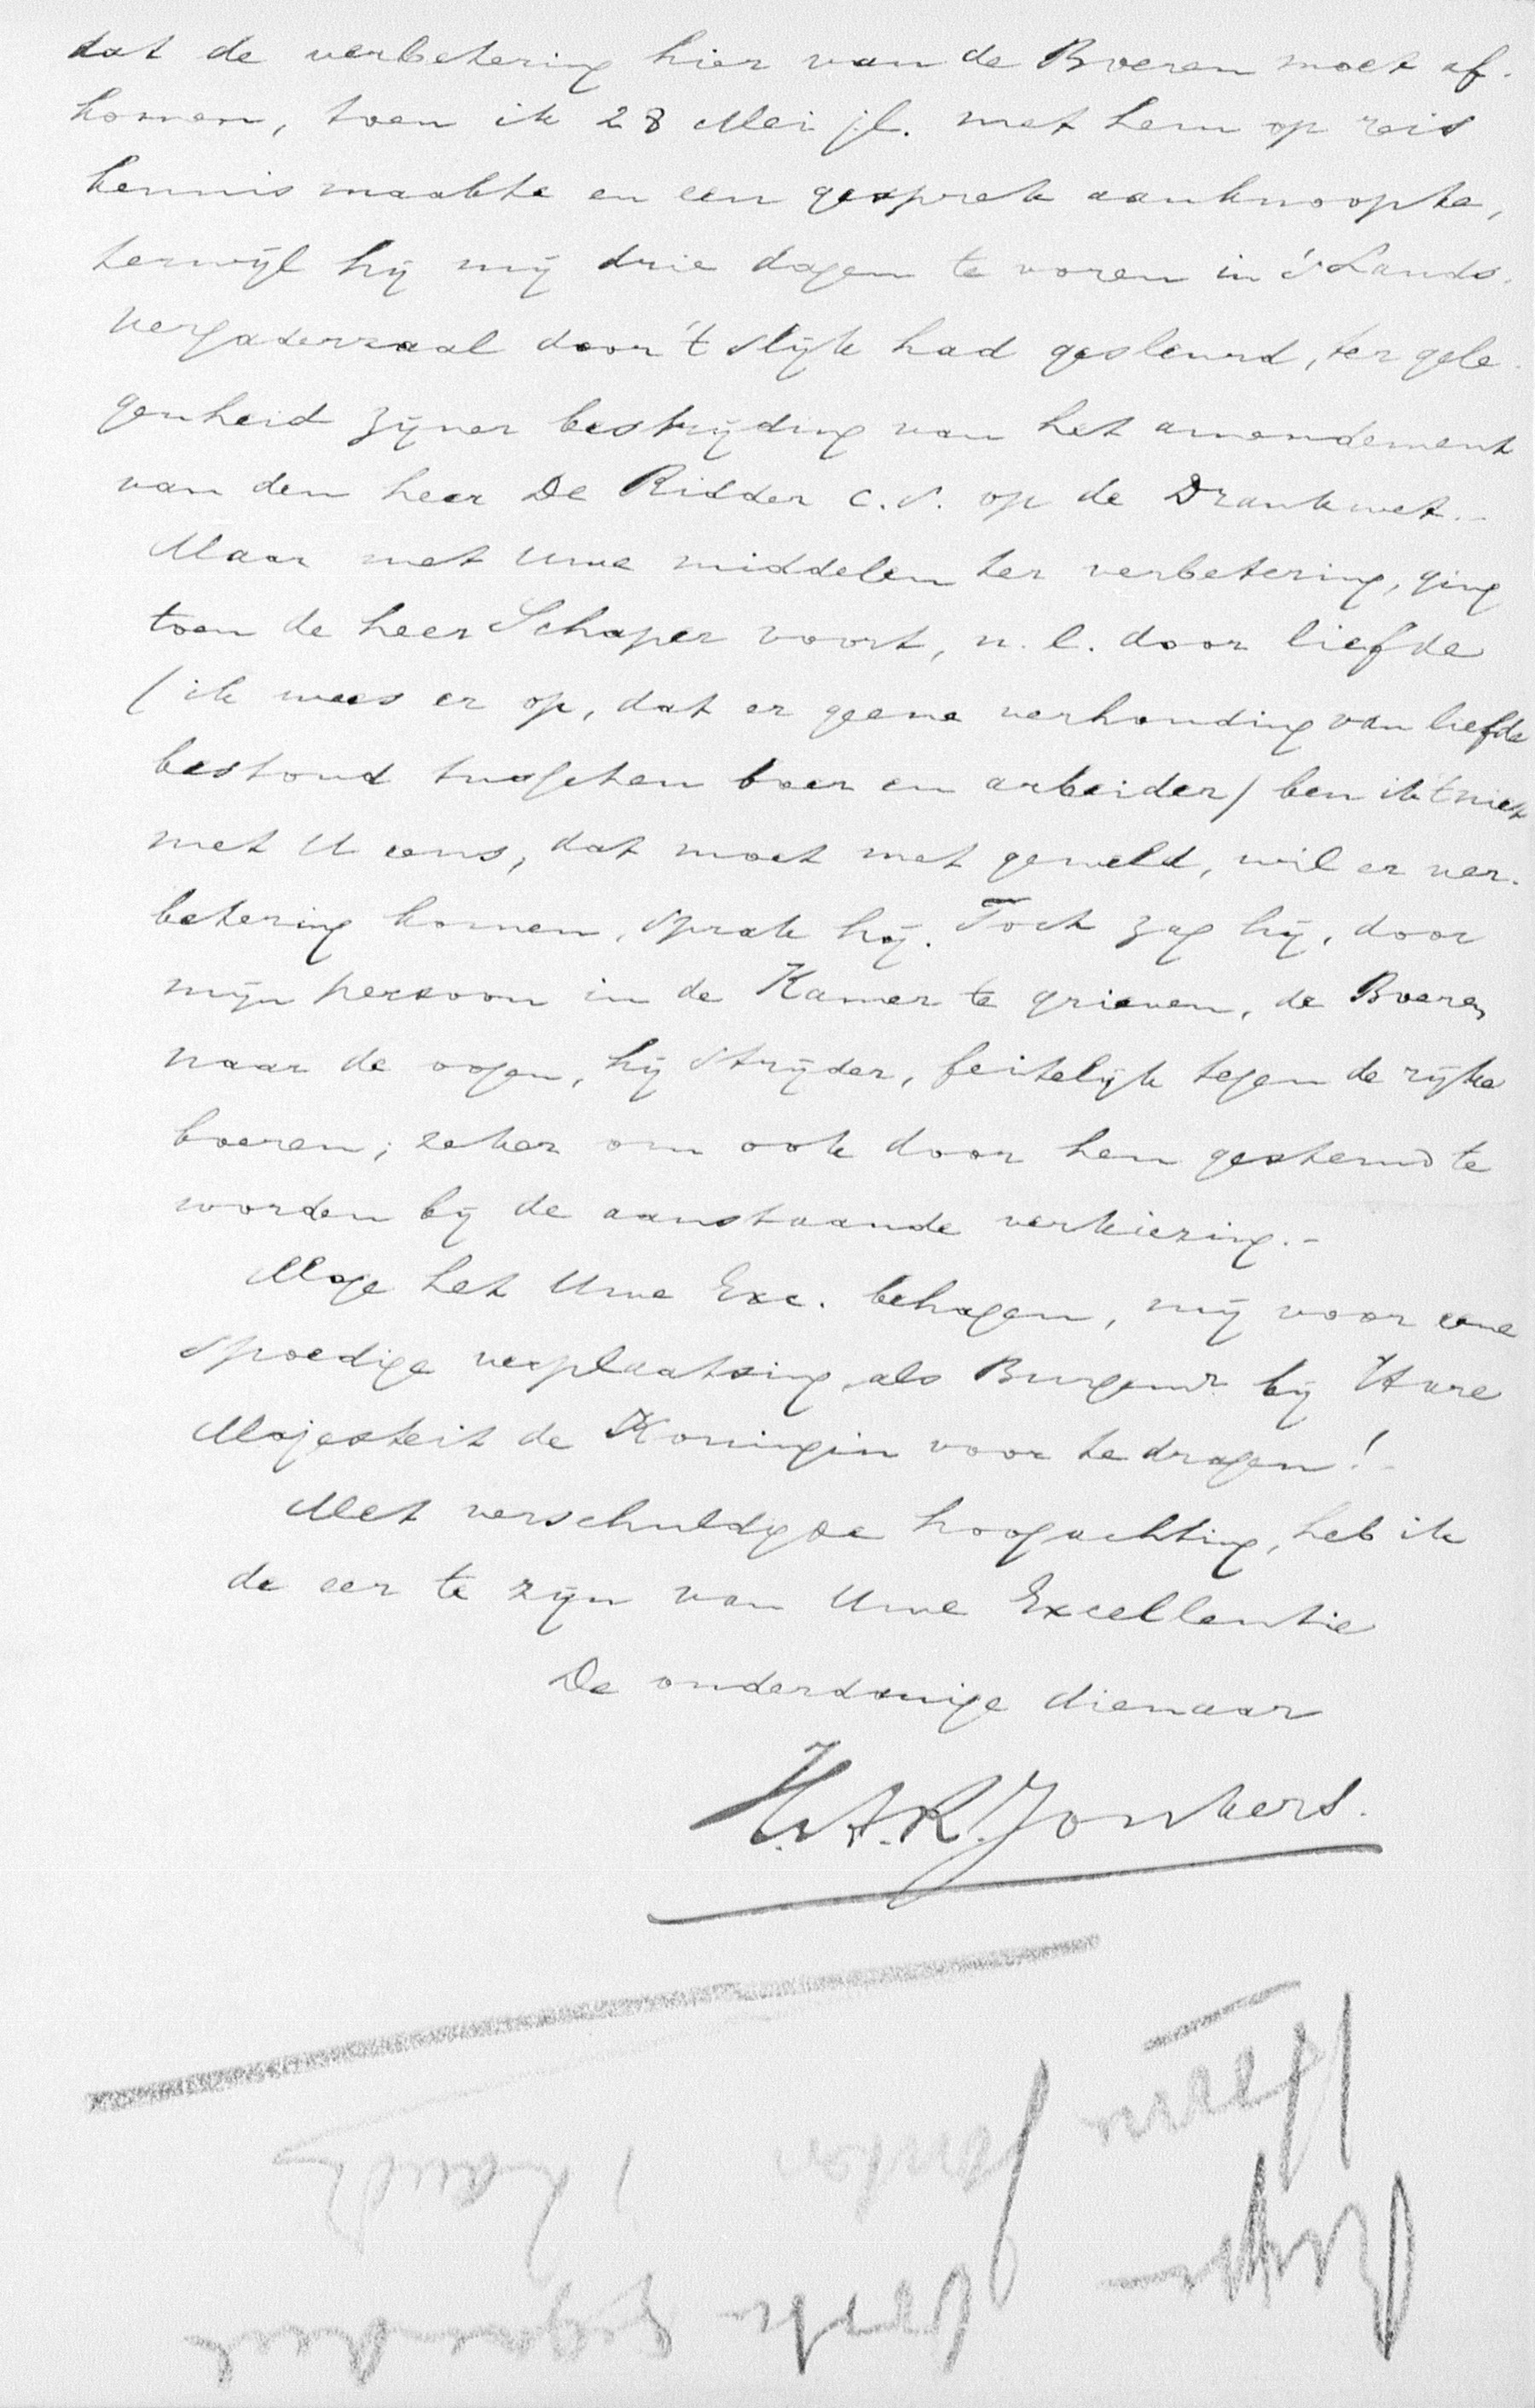 dat de verbetering hier van de Boeren moet af-
komen, toen ik 28 Mei j.l. met hem op reis
kennis maakte en een gesprek aanknoopte,
terwijl hij mij drie dagen te voren in 's Lands-
vergaderzaal door 't slijk had gesleurd, ter gele-
genheid zijner bestrijding van het amendement
van den heer De Ridder c.s. op de Drankwet.-
Maar met Uwe middelen ter verbetering, ging
toen de heer Schaper voort, n.l. door liefde
(ik wees er op, dat er geene verhouding van liefde
bestond tusschen boer en arbeider) ben ik 't niet
met U eens, dat moet met geweld, wil er ver-
betering komen, sprak hij. Toch zag hij, door
mijn persoon in de Kamer te grieven, de Boeren
naar de oogen, hij strijder, feitelijk tegen de rijke
boeren; zeker om ook door hen gestemd te
worden bij de aanstaande verkiezing.-
Moge het Uwe Exc. behagen, mij voor eene
spoedige verplaatsing als Burgemr. bij Hare
Majesteit de Koningin voor te dragen!-
Met verschuldigde hoogachting, heb ik
de eer te zijn van Uwe Excellentie
De onderdanige dienaar
H.A.R. Jonkers.